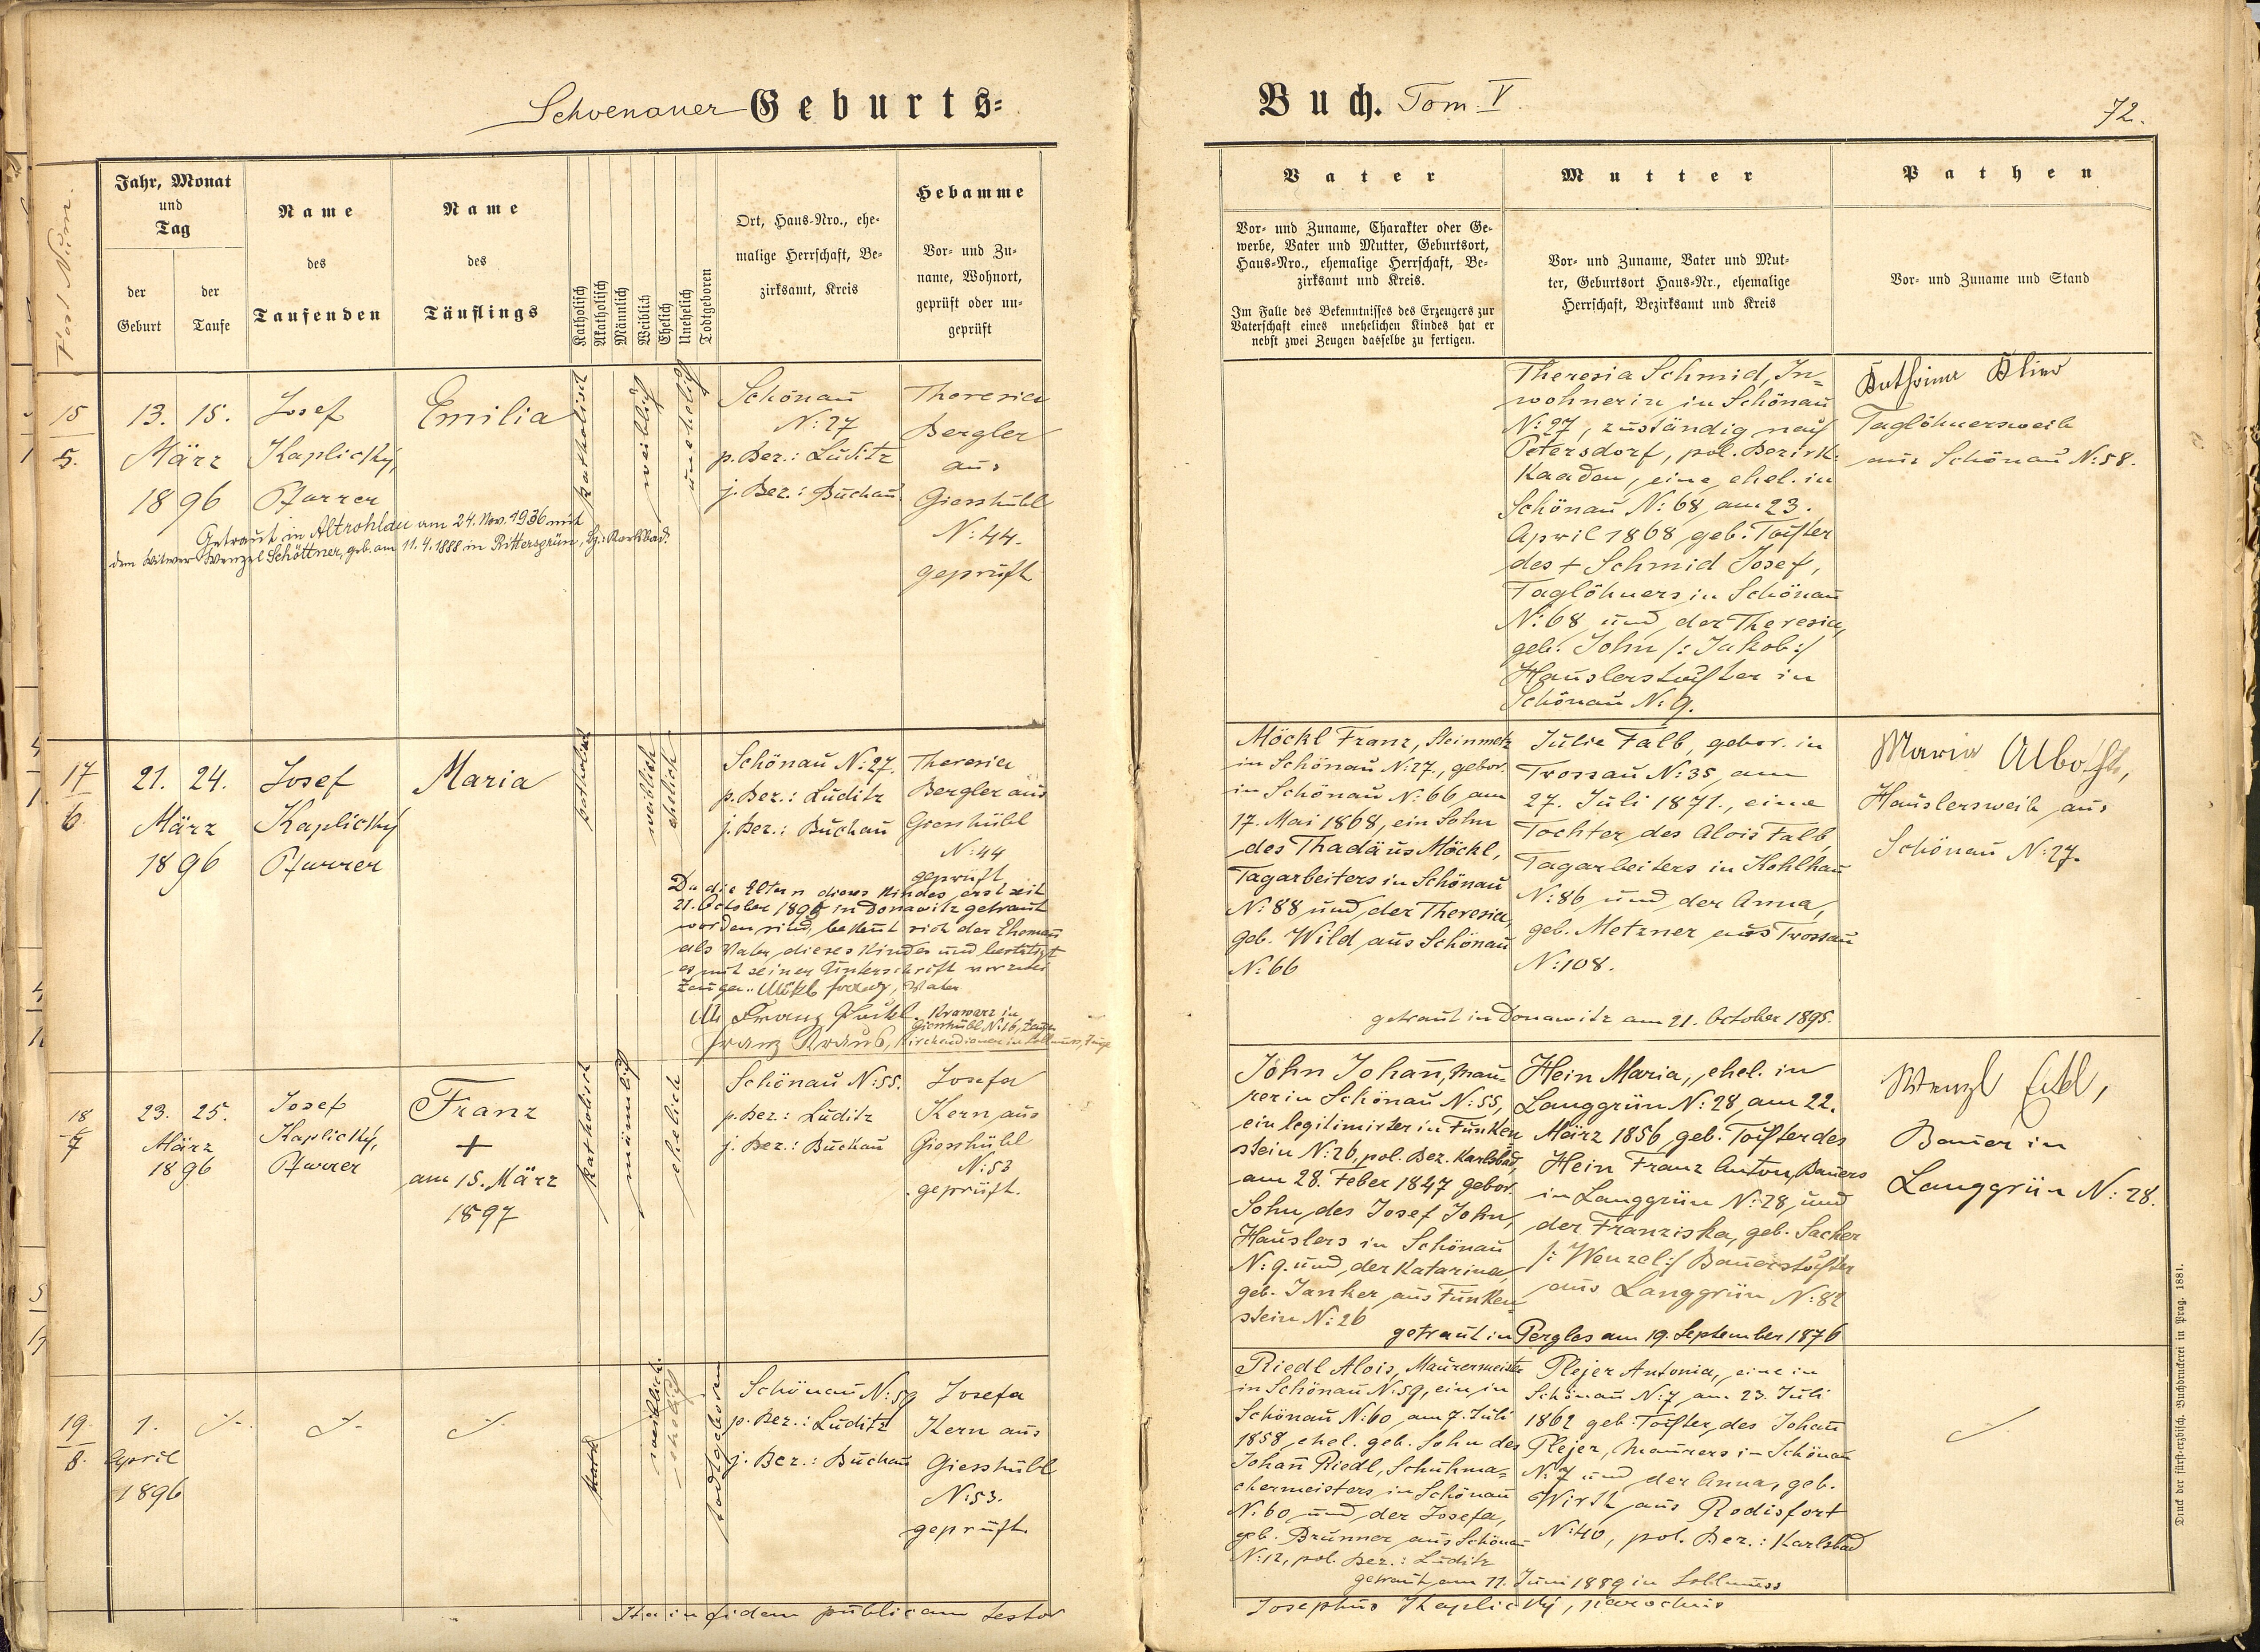 Schoenauer Geburts=
Buch. Tom. V.
72.
Post Num.
Jahr, Monat
und
Tag
der
Geburt
der
Taufe
Name
des
Taufenden
Name
des
Täuflings
Katholisch
Akatholisch
Männlich
Weiblich
Ehelich
Unehelich
Todtgeboren
Ort, Haus-Nro., ehe-
malige Herrschaft, Be-
zirksamt, Kreis
Hebamme
Vor- und Zu-
name, Wohnort,
geprüft oder un-
geprüft
Vater
Vor- und Zuname, Charakter oder Ge-
werbe, Vater und Mutter, Geburtsort,
Haus-Nro., ehemalige Herrschaft, Be-
zirksamt und Kreis.
Im Falle des Bekenntnisses des Erzeugers zur
Vaterschaft eines unehelichen Kindes hat er
nebst zwei Zeugen dasselbe zu fertigen.
Mutter
Vor- und Zuname, Vater und Mut-
ter, Geburtsort Haus-Nr., ehemalige
Herrschaft, Bezirksamt und Kreis
Pathen
Vor- und Zuname und Stand
15
5.
13. 15.
März
1896
Josef
Kaplický,
Pfarrer
Emilia
katholisch
weiblich
unehelich
Schönau
N: 27
p. Bez.: Luditz
j. Bez.: Buchau
Theresia
Bergler
aus
Giesshübl
N: 44.
geprüft
Getraut in Altrohlau am 24. Nov. 1936 mit
dem Witwer Wenzel Schöttner, geb. am 11.4.1888 in Rittersgrün, Bz.: Karlsbad.
Theresia Schmid, In=
wohnerin in Schönau
N: 27, zuständig nach
Petersdorf, pol. Bezirk:
Kaaden, eine ehel. in
Schönau N: 68 am 23.
April 1868 geb. Tochter
des + Schmid Josef,
Taglöhners in Schönau
N: 68 und der Theresia,
geb. John /: Jakob :/
Häuslerstochter in
Schönau N: 9.
Katharina Klier
Taglöhnersweib
aus Schönau N: 58.
17
6.
21. 24.
März
1896
Josef
Kaplický
Pfarrer
Maria
katholisch
weiblich
ehelich
Schönau N: 27.
p. Bez.: Luditz
j. Bez.: Buchau
Theresia
Bergler aus
Giesshübl
N: 44
geprüft
Da die Eltern dieses Kindes erst seit
21. October 1895 in Donawitz getraut
worden sind, bekennt sich der Ehemann
als Vater dieses Kindes und bestätigt
es mit seiner Unterschrift vor zwei
Zeugen. Möckl Franz, Vater
Franz
in
Giesshübl N: 16, Zeuge
Franz Kraus, Kirchendiener in Zeuge
Möckl Franz, Steinmetz
in Schönau N: 27., gebor.
in Schönau N: 66 am
17. Mai 1868, ein Sohn
des Thadäus Möckl,
Tagarbeiters in Schönau
N: 88 und der Theresia,
geb. Wild aus Schönau
N: 66
Julie Falb, gebor. in
Trossau N: 35, am
27. Juli 1871., eine
Tochter des Alois Falb,
Tagarbeiters in Kohlhau
N: 86 und der Anna,
geb. Metzner aus Trossau
N: 108.
getraut in Donawitz am 21. October 1895.
Maria
Häuslersweib aus
Schönau N: 27.
18
7
23. 25.
März
1896
Josef
Kaplický,
Pfarrer
Franz
+
am 15. März
1897
katholisch
männlich
ehelich
Schönau N: 55.
p. Bez.: Luditz
j. Bez.: Buchau
Josefa
Kern aus
Giesshübl
N: 53
geprüft.
John Johan̄, Mau-
rer in Schönau N: 55,
ein legitimirter in Funken
stein N: 26, pol. Bez. Karlsbad,
am 28. Feber 1847 gebor.
Sohn des Josef John,
Häuslers in Schönau
N: 9. und der Katarina,
geb. Janker aus Funken=
stein N: 26
Hein Maria, ehel. in
Langgrün N: 28 am 22.
März 1856 geb. Tochter des
Hein Franz Anton, Bauers
in Langgrün N: 28 und
der Franziska, geb. Sacher
/: Wenzel :/ Bauerstochter
aus Langgrün N: 82
getraut in Pergles am 19. September 1876
Wenzl
Bauer in
Langgrün N: 28.
19.
8.
1.
April
1896
kath
weiblich
ehelich
todtgeboren
Schönau N: 59
p. Bez.: Luditz
j. Bez.: Buchau
Josefa
Kern aus
Giesshübl
N: 53.
geprüft.
Riedl Alois, Maurermeister
in Schönau N: 59, ein in
Schönau N: 60 am 7. Juli
1858 ehel. geb. Sohn des
Johan̄ Riedl, Schuhma=
chermeisters in Schönau
N: 60 und der Josefa,
geb. Brunner aus Schönau
N: 12, pol. Bez.: Luditz
Plejer Antonia, eine in
Schönau N: 7 am 23. Juli
1862 geb. Tochter des Johan̄
Plejer, Maurers in Schönau
N: 7 und der Anna, geb.
Wirth aus Rodisfort
N: 40, pol. Bez.: Karlsbad
getraut am 11. Juni 1889 in Sollmuss
Ita in fidem publicam testor
Josephus Kaplický, parochus
Druck der fürst-erzbisch. Buchdruckerei in Prag. 1881.